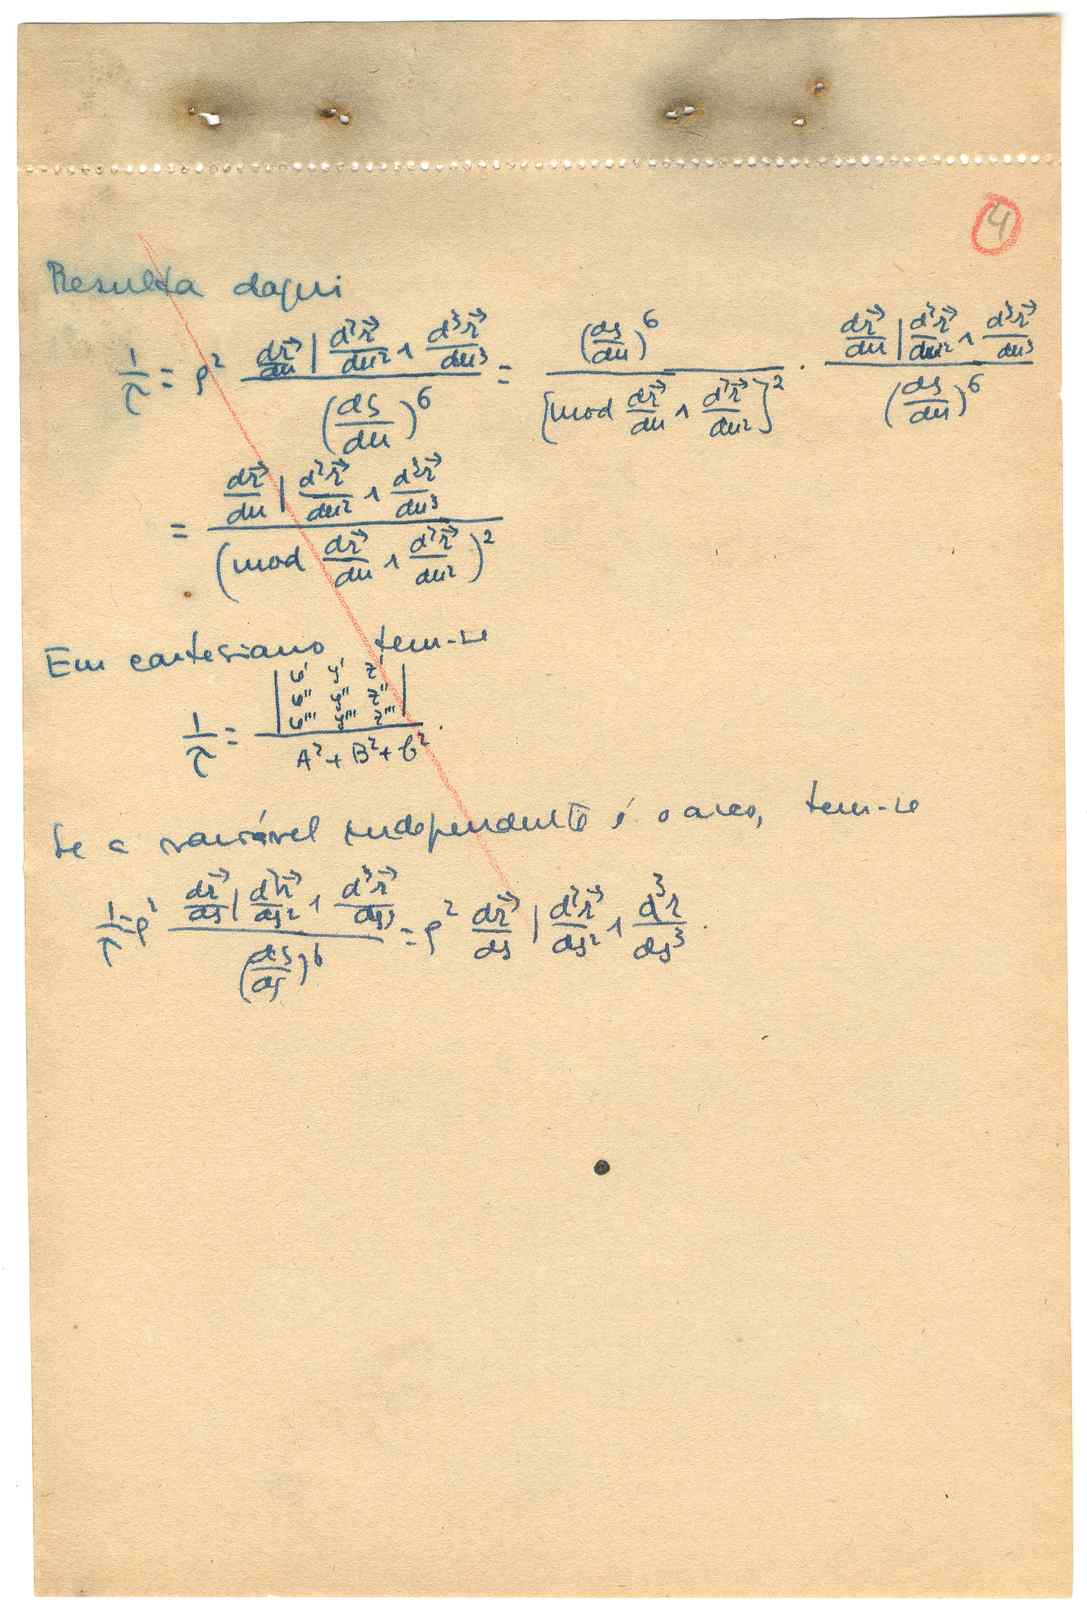 4
Resulta daqui
$\frac{1}{\tau} = \rho^2 \frac{\frac{d\vec{r}}{du} | \frac{d^2\vec{r}}{du^2} \wedge \frac{d^3\vec{r}}{du^3}}{\left(\frac{ds}{du}\right)^6} = \frac{\left(\frac{ds}{du}\right)^6}{\left[mod \frac{d\vec{r}}{du} \wedge \frac{d^2\vec{r}}{du^2}\right]^2} \cdot \frac{\frac{d\vec{r}}{du} | \frac{d^2\vec{r}}{du^2} \wedge \frac{d^3\vec{r}}{du^3}}{\left(\frac{ds}{du}\right)^6}$
$= \frac{\frac{d\vec{r}}{du} | \frac{d^2\vec{r}}{du^2} \wedge \frac{d^3\vec{r}}{du^3}}{\left(mod \frac{d\vec{r}}{du} \wedge \frac{d^2\vec{r}}{du^2}\right)^2}$
Em cartesiano tem-se
$\frac{1}{\tau} = \frac{\begin{vmatrix} x' & y' & z' \\ x'' & y'' & z'' \\ x''' & y''' & z''' \end{vmatrix}}{A^2 + B^2 + C^2}.$
Se a variável independente é o arco, tem-se
$\frac{1}{\tau} = \rho^2 \frac{\frac{d\vec{r}}{ds} | \frac{d^2\vec{r}}{ds^2} \wedge \frac{d^3\vec{r}}{ds^3}}{\left(\frac{ds}{ds}\right)^6} = \rho^2 \frac{d\vec{r}}{ds} | \frac{d^2\vec{r}}{ds^2} \wedge \frac{d^3 r}{ds^3}.$